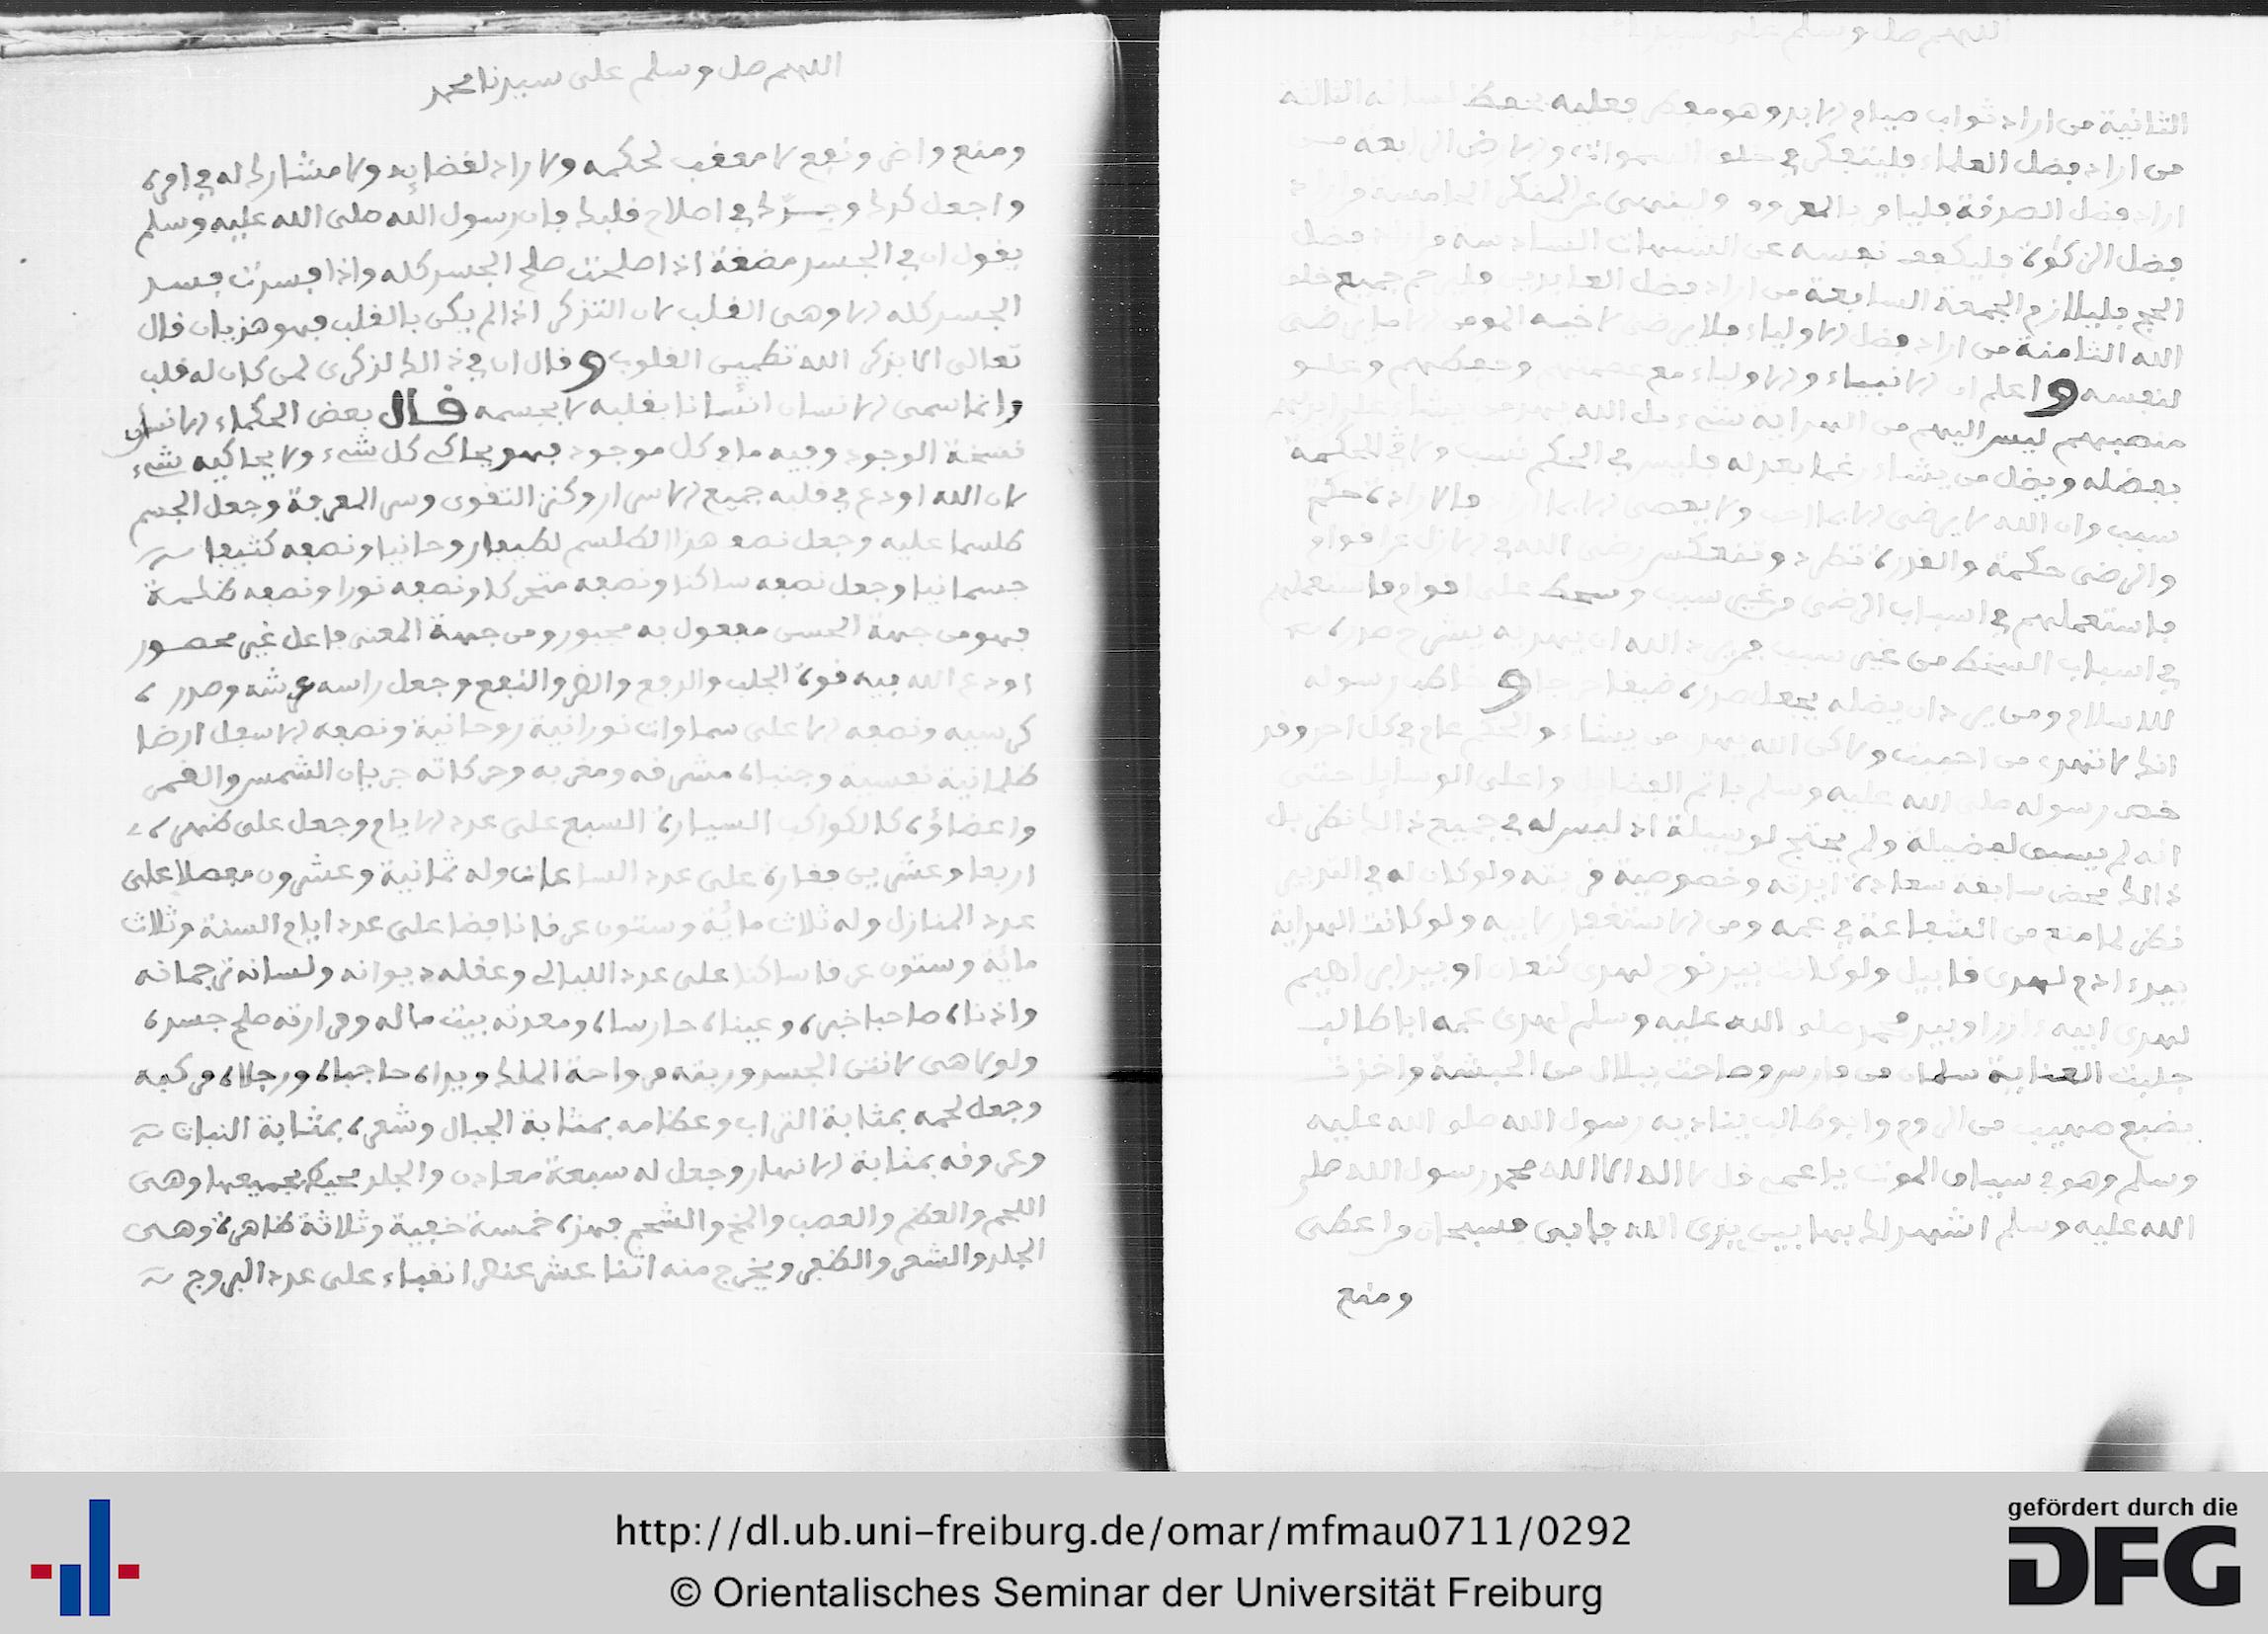 اللهم صل وسلم على سيدنا
الثانية من اراد ثواب صيام الابد وهو مفطر فعليه بحفظ لسانه الثالثة
من اراد فضل العلماء فليتفكر في خلق السموات والارض الرابعة من
اراد فضل الصدقة فليامر بالمعروف ولينهى عن المنكر الخامسة من اراد
فضل الزكوة فليكفف نفسه عن الشبهات السادسة من اراد فضل
الحج فليلازم الجمعة السابعة من اراد فضل العابدين فليرحم جميع خلق
الله الثامنة من اراد فضل الاولياء فلا يرضى لاخيه المومن الا ما يرضى
لنفسه واعلم ان الانبياء والاولياء مع عصمتهم وحفظهم وعلو
منصبهم ليس اليهم من الهداية شيء بل الله يهدي من يشاء
بفضله ويضل من يشاء بعدله فليس في الحكم نسب ولا في الحكمة
سبب وان الله لا يرضى الا بما احب ولا يعصى الا بما اراد فالارادة حكم
والرضى حكمة والقدرة تطرد وتنعكس رضى الله في الازل عن اقوام
فاستعملهم في اسباب الرضى من غير سبب وسخط على اقوام فاستعملهم
في اسباب السخط من غير سبب فمن يرد الله ان يهديه يشرح صدره
للاسلام ومن يرد ان يضله يجعل صدره ضيقا حرجا وخاطب رسوله
انك لا تهدي من احببت ولاكن الله يهدي من يشاء والحكم عام في كل احد وقد
خص رسوله صلى الله عليه وسلم باتم الفضايل واعلى الوسايل حتى
انه لم يسبق لفضيلة ولم يحتج لوسيلة اذ ليس له في جميع ذالك نظر بل
ذالك محض سابقة سعادة ابدته وخصوصية قربته ولو كان له في التدبير
نظر لما منع من الشفاعة في عمه ومن الاستغفار لابيه ولو كانت الهداية
بيد ءادم لهدى قابيل ولو كانت بيد نوح لهدى كنعان او بيد ابراهيم
لهدى ابيه ءازر او بيد محمد صلى الله عليه وسلم لهدى عمه ابا طالب
جلبت العناية سلمان من فارس وصاحت ببلال من الحبشة واخذت
بضبع صهيب من الروم وابو طالب يناديه رسول الله صلى الله عليه
وسلم وهو في سياق الموت يا عمي قل لا اله الا الله محمد رسول الله صلى
الله عليه وسلم اشهد لك بها بين يدى الله فابى فسبحان من اعطى
ومنع
اللهم صل وسلم على سيدنا محمد
ومنع واضر ونفع لا معقب لحكمه ولا راد لقضايه ولا مشارك له في امره
واجعل كدك وجدك في اصلاح قلبك فان رسول الله صلى الله عليه وسلم
يقول ان في الجسد مضغة اذا صلحت صلح الجسد كله واذا فسدت فسد
الجسد كله الا وهى القلب لان التذكر اذا لم يكن بالقلب فهو هذيان قال
تعالى الا بذكر الله تطمين القلوب وقال ان في ذالك لذكرى لمن كان له قلب
وانما سمى الانسان انسانا بقلبه لا بجسمه قال بعض الحكماء الانسان
نسخة الوجود وفيه ما في كل موجود فهو يحاكي كل شيء ولا يحاكيه شيء
لان الله اودع في قلبه جميع الاسرار وكنز التقوى وسر المعرفة وجعل الجسم
طلسما عليه وجعل نصف هذا الطلسم لطيفا روحانيا ونصفه كثيفا
جسمانيا وجعل نصفه ساكنا ونصفه متحركا ونصفه نورا ونصفه ظلمة
فهو من جهة الحسن مفعول به مجبور ومن جهة المعنى فاعل غير محصور
اودع الله فيه قوة الجلب والدفع والضر والنفع وجعل راسه عرشه وصدره
كرسيه ونصفه الاعلى سماوات نورانية روحانية ونصفه الاسفل ارضا
ظلمانية نفسية وجنباه مشرقه ومغربه وحركاته جريان الشمس والقمر
واعضاؤه كالكواكب السيارة السبع على عدد الايام وجعل على ظهره
اربعا وعشرين فقارة على عدد الساعات وله ثمانية وعشرون مفصلا على
عدد المنازل وله ثلاث مائة وستون عرقا نابضا على عدد ايام السنة وثلاث
مائة وستون عرقا ساكنا على عدد الليالي وعقله ديوانه ولسانه ترجمانه
واذناه صاحبا خبره وعيناه حارساه ومعدته بيت ماله ومرارته ملح جسده
ولولا هى لانتن الجسد وريقه مرواحة الملك ويداه حاجباه ورجلاه مركبه
وجعل لحمه بمثابة التراب وعظامه بمثابة الجبال وشعره بمثابة النبات
وعروقه بمثابة الانهار وجعل له سبعة معادن والجلد محيط بجميعها وهى
اللحم والعظم والعصب والمخ والشحم فهذه خمسة خفية وثلاثة ظاهرة وهى
الجلد والشعر والظفر ويخرج منه اثنا عشر عنصرا نقباء على عدد البروج
http://dl.ub.uni-freiburg.de/omar/mfmau0711/0292
© Orientalisches Seminar der Universität Freiburg
gefördert durch die
DFG